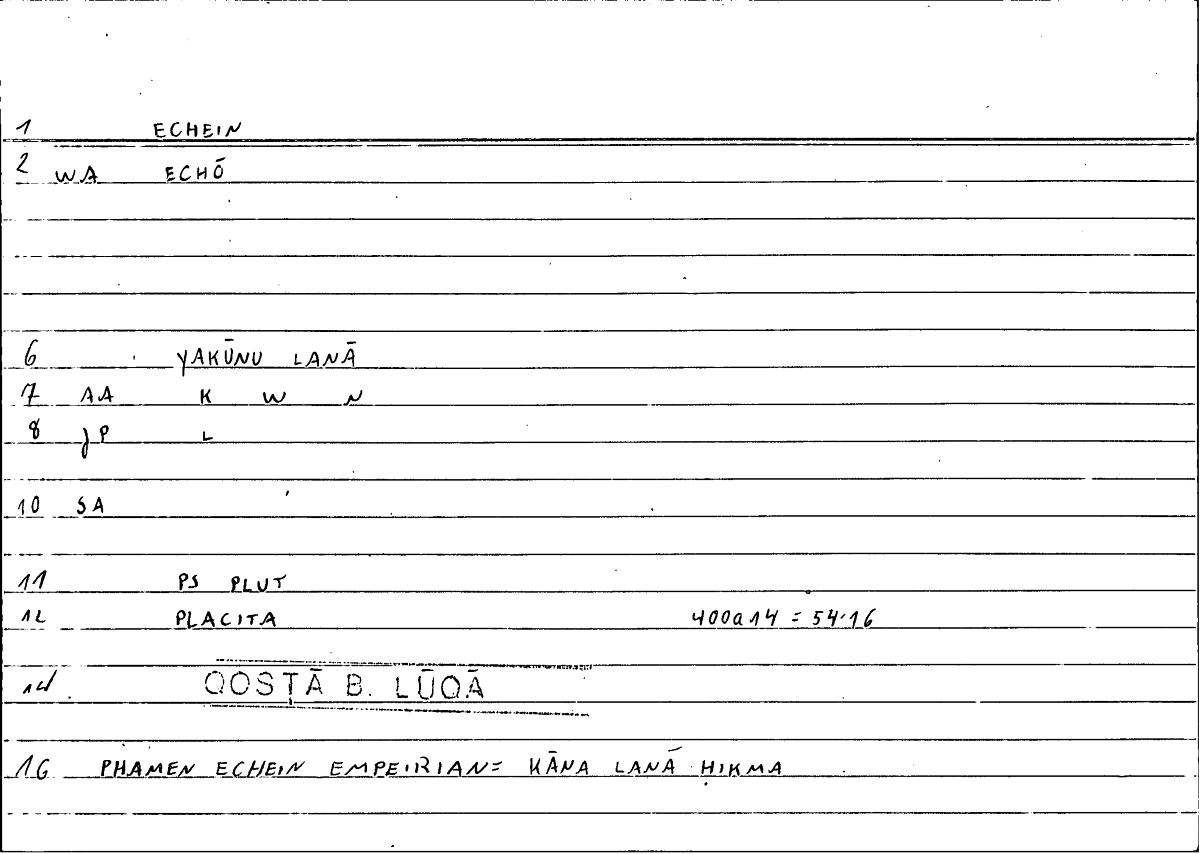 1 ECHEIN
2 WA ECHŌ
6 YAKŪNU LANĀ
7 AA K W N
8 JP L
10 SA
11 PS PLUT
12 PLACITA 400a14 = 54,16
14 QOSṬĀ B. LŪQĀ
16 PHAMEN ECHEIN EMPEIRIAN = KĀNA LANĀ ḤIKMA